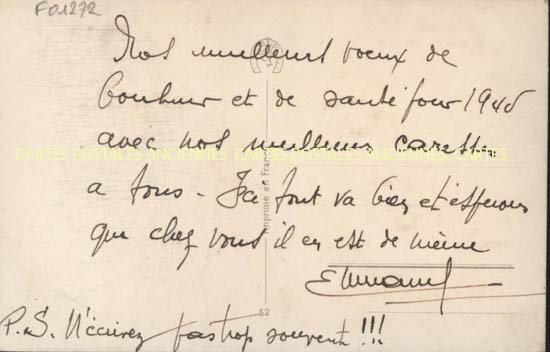 F01272
Nos meilleurs voeux de
bonheur et de santé pour 1946
avec nos meilleures caresses
CARTES POSTALES ANCIENNES CARTES POSTALES ANCIENNES
a tous - Ici tout va bien et espérons
que chez vous il en est de même
Imprimé en France
52
P.S. N'écrivez pas trop souvent !!!